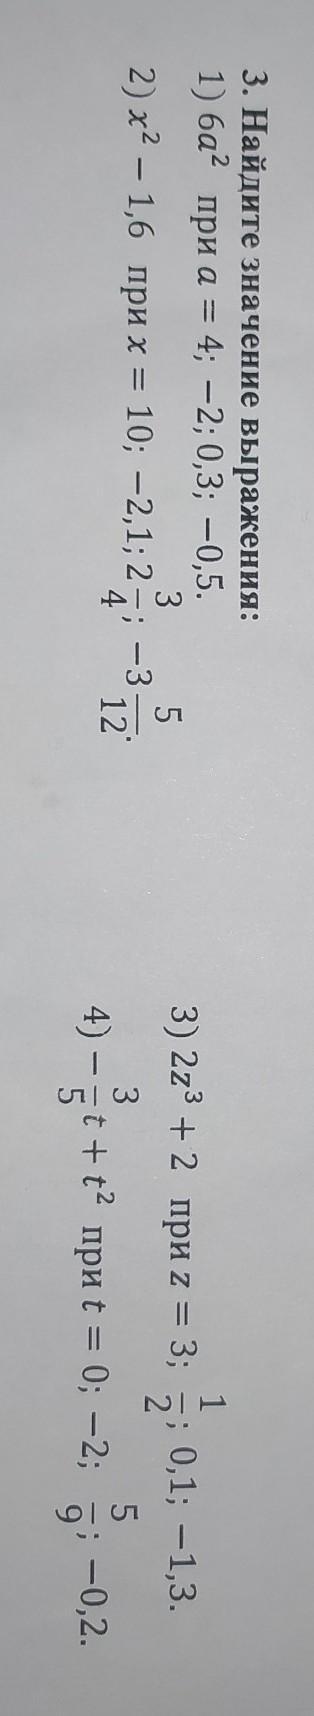 3. Найдите значение выражения:
1) 6a² при a = 4; −2; 0,3; −0,5.
2) x² − 1,6 при x = 10; −2,1; 2 3/4; −3 5/12.
3) 2z³ + 2 при z = 3; 1/2; 0,1; −1,3.
4) −3/5 t + t² при t = 0; −2; 5/9; −0,2.